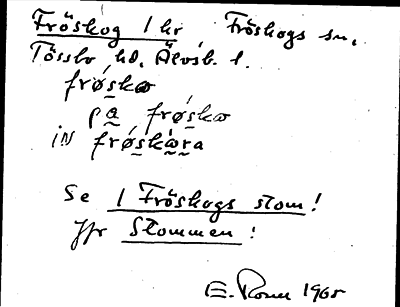 Fröskog 1 hr Fröskogs sn.
Tössbo hd. Älvsb. l.
frǿskω
pa frǿskω
IN frǿskàra
Se 1 Fröskogs stom!
Jfr Stommen!
E. Rosén 1965